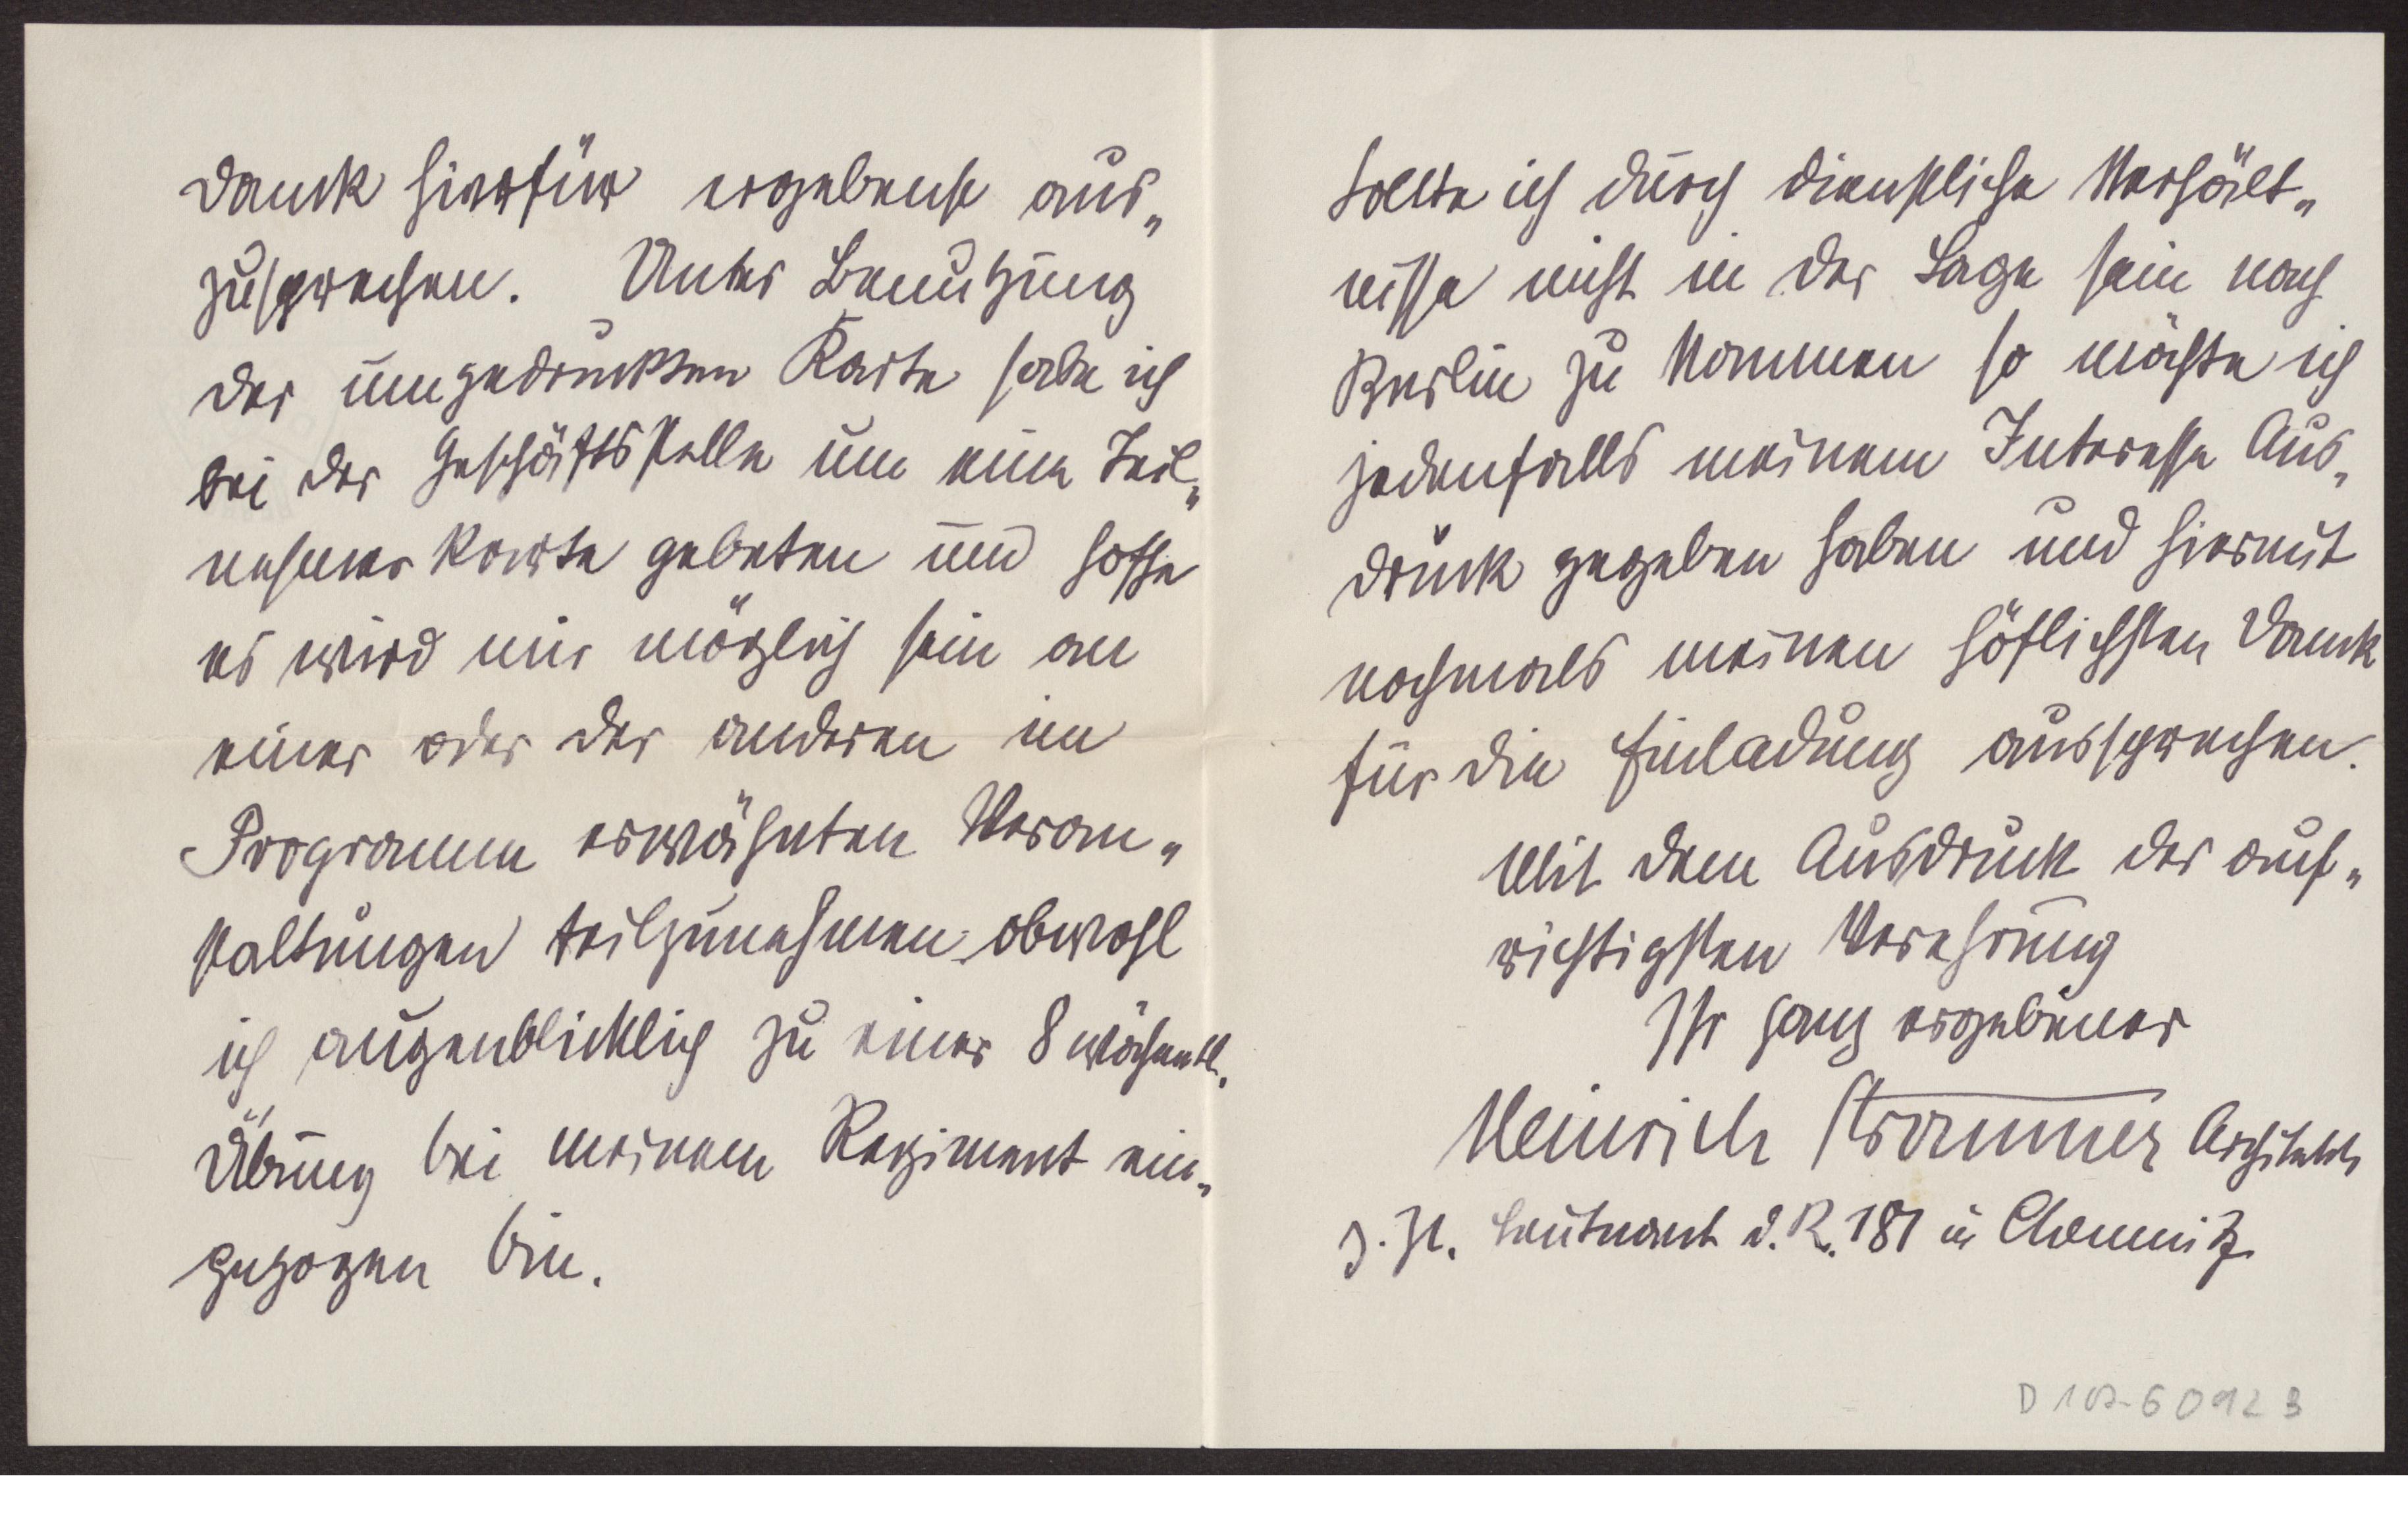 Dank hierfür ergebenst aus„
zusprechen. Unter Benutzung
der umgedruckten Karte habe ich
bei der Geschäftsstelle um eine Teil„
nehmer Karte gebeten und hoffe
es wird mir möglich sein an
einer oder der anderen im
Programm erwähnten Veran„
staltungen teilzunehmen obwohl
ich augenblicklich zu einer 8 wöchentl.
Übung bei meinem Regiment ein„
gezogen bin.
Sollte ich durch dienstliche Verhält„
nisse nicht in der Lage sein nach
Berlin zu kommen so möchte ich
jedenfalls meinem Interesse Aus„
druck gegeben haben und hiermit
nochmals meinen höflichsten Dank
für die Einladung aussprechen.
Mit dem Ausdruck der auf„
richtigsten Verehrung
Ihr ganz ergebener
Heinrich Strammer Architekt
z. Zt. Leutnant d. R. 181 in Chemnitz